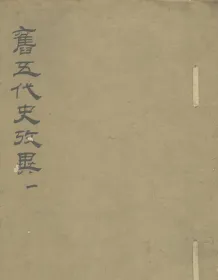 舊五代史攷異一